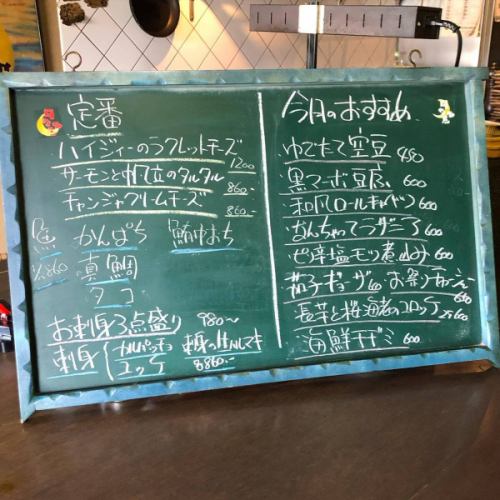 定番
ハイジィーのラクレットチーズ
1200
サーモンと帆立のタルタル
860.-
チャンジャクリームチーズ
860.-
かんぱち 鮪中おち
860
真鯛
タコ
お刺身3点盛り 980~
刺身
カルパッチョ
ユッケ
860.-
今月のおすすめ
ゆでたて空豆 480
黒マーボ豆腐 600
和風ロールキャベツ 600
なんちゃってラザニア 600
ピリ辛塩モツ煮込み 600
茄子ギョーザ 600
長芋と桜海老のコロッケ
海鮮チヂミ 600